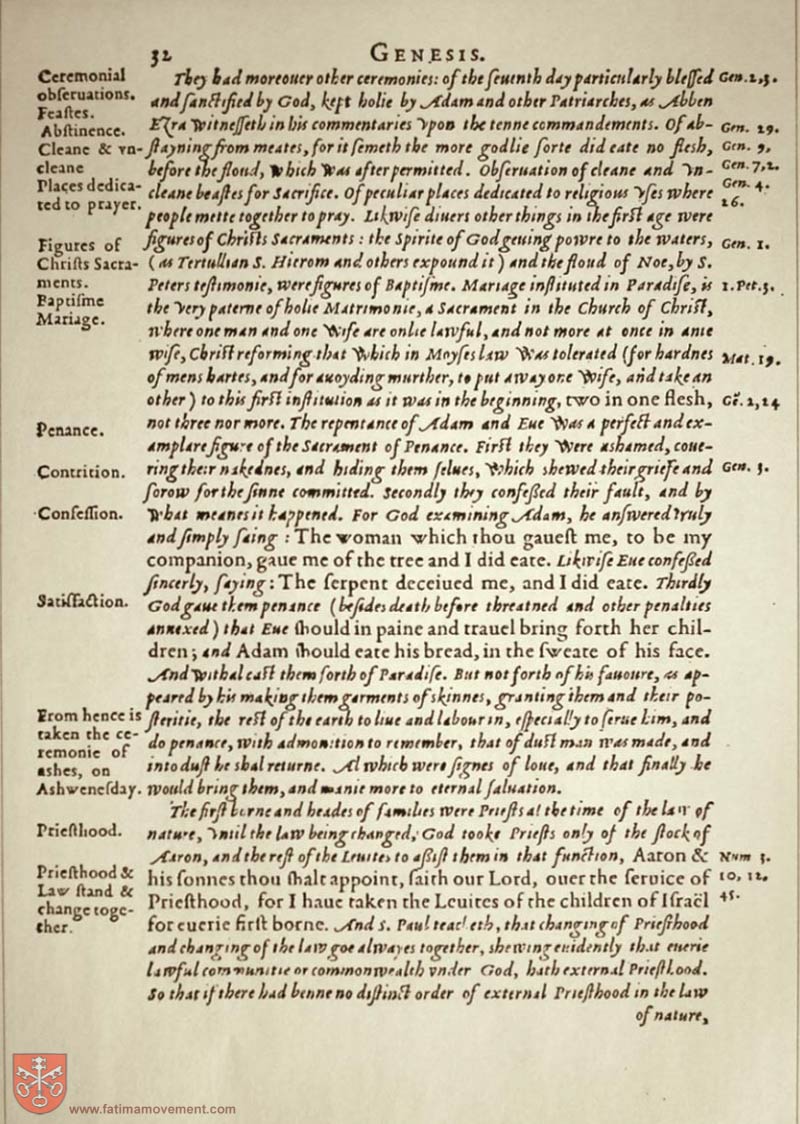 32
GENESIS.
Ceremonial
obſeruations.
Feaſtes.
Abſtinence.
Cleane & vn-
cleane
Places dedica-
ted to prayer.
Figures of
Chriſts Sacra-
ments.
Baptiſme
Mariage.
Penance.
Contrition.
Confeſſion.
Satisfaction.
From hence is
taken the ce-
remonie of
ashes, on
Ashwenesday.
Prieſthood.
Prieſthood &
Law ſtand &
change toge-
ther.
They had moreouer other ceremonies: of the ſeuenth day particularly bleſſed
and ſanctified by God, kept holie by Adam and other Patriarches, as Abben
Ezra witneſſeth in his commentaries vpon the tenne commandements. Of ab-
ſtayning from meates, for it ſemeth the more godlie ſorte did eate no fleſh,
before the floud, which was after permitted. Obſeruation of cleane and vn-
cleane beaſtes for Sacrifice. Of peculiar places dedicated to religious vſes where
people mette together to pray. Likwiſe diuers other things in the firſt age were
figures of Chriſts Sacraments: the Spirite of God geuing powre to the waters,
(as Tertullian S. Hierom and others expound it) and the floud of Noe, by S.
Peters teſtimonie, were figures of Baptiſme. Mariage inſtituted in Paradiſe, is
the very paterne of holie Matrimonie, a Sacrament in the Church of Chriſt,
where one man and one wife are onlie lawful, and not more at once in anie
wiſe, Chriſt reforming that which in Moyſes law was tolerated (for hardnes
of mens hartes, and for auoyding murther, to put away one wife, and take an
other) to this firſt inſtitution as it was in the beginning, two in one fleſh,
not three nor more. The repentance of Adam and Eue was a perfect and ex-
amplare figure of the Sacrament of Penance. Firſt they were ashamed, coue-
ring their nakednes, and hiding them ſelues, which shewed their griefe and
ſorow for the ſinne committed. Secondly they confeßed their fault, and by
what meanes it happened. For God examining Adam, he anſwered truly
and ſimply ſaing: The woman which thou gaueſt me, to be my
companion, gaue me of the tree and I did eate. Likwiſe Eue confeßed
ſincerly, ſaying: The ſerpent deceiued me, and I did eate. Thirdly
God gaue them penance (beſides death before threatned and other penalties
annexed) that Eue should in paine and trauel bring forth her chil-
dren; and Adam should eate his bread, in the ſweate of his face.
And withal caſt them forth of Paradiſe. But not forth of his fauoure, as ap-
peared by his making them garments of skinnes, granting them and their po-
ſteritie, the reſt of the earth to liue and labour in, eſpecially to ſerue him, and
do penance, with admonition to remember, that of duſt man was made, and
into duſt he shal returne. Al which were ſignes of loue, and that finally he
would bring them, and manie more to eternal ſaluation.
The firſt borne and heades of families were Prieſts al the time of the law of
nature, vntil the law being changed, God tooke Prieſts only of the ſtock of
Aaron, and the reſt of the Leuites to aßiſt them in that function, Aaron &
his ſonnes thou shalt appoint, ſaith our Lord, ouer the ſeruice of
Prieſthood, for I haue taken the Leuites of the children of Iſraël
for euerie firſt borne. And S. Paul teacheth, that changing of Prieſthood
and changing of the law goe alwayes together, shewing euidently that euerie
lawful communitie or commonwealth vnder God, hath external Prieſthood.
So that if there had benne no diſtinct order of external Prieſthood in the law
of nature,
Gen. 2, 3.
Gen. 29.
Gen. 9,
Gen. 7, 2.
Gen. 4.
26.
Gen. 1.
1. Pet. 3.
Mat. 19.
Gē. 2, 24
Gen. 3.
Num 3.
10, 12.
45.
www.fatimamovement.com